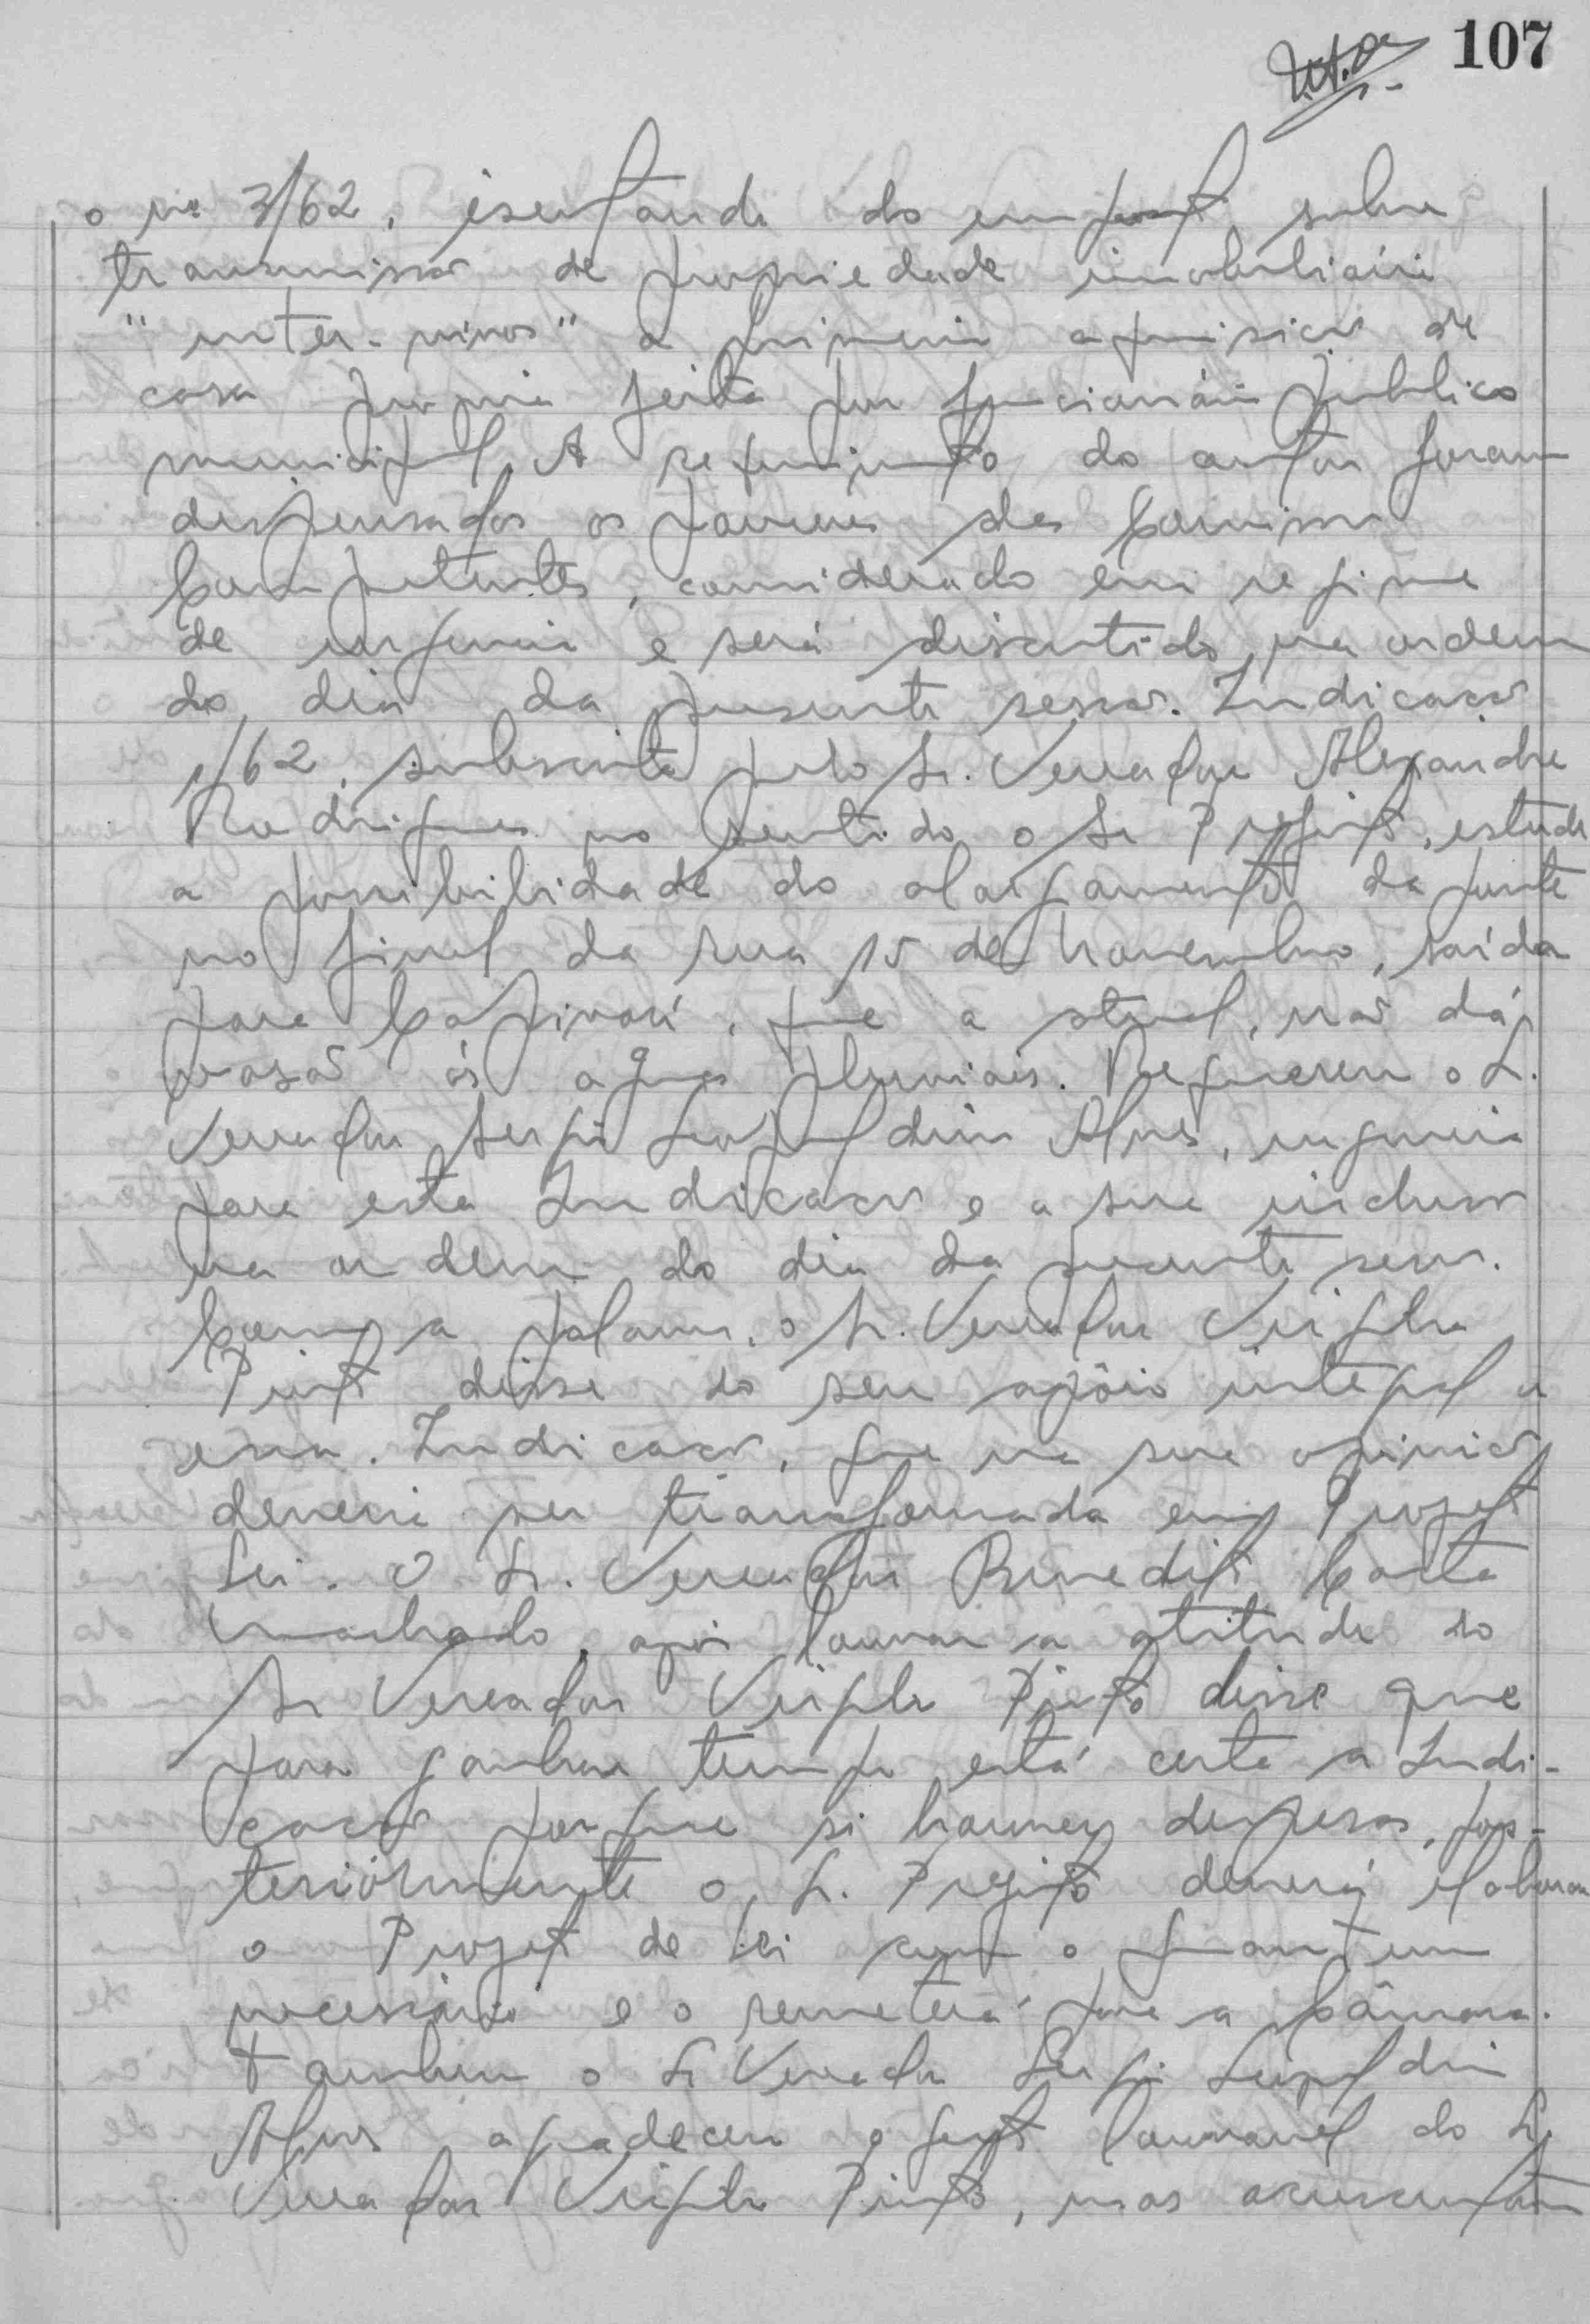 107
o nº 3/62, isentando do impost sobre
transmissão de propriedade imobiliária
"inter-vivos" a primeira aquisição de
casa propria feita por funcionário publico
municipal. A requerimento do autor foram
dispensados os pareceres das Comissões
Competentes, considerado em regime
de urgencia e será discutido na ordem
do dia da presente sessão. Indicação
1/62, subscrita pelo Sr. Vereador Alexandre
Rodrigues no sentido o Sr Prefeito, estude
a possibilidade do alargamento da ponte
no final da rua 15 de Novembro, saída
para Capivari, que a atual, não dá
vasão ás aguas pluviais. Requereu o Sr.
Vereador Sergio Leopoldino Alves, urgencia
para esta Indicação e a sua inclusão
na ordem do dia da presente sessão.
Com a palavra, o Sr. Vereador Virgilio
Pinto disse do seu apôio integral a
essa. Indicação, que na sua opinião
deveria ser transformada em Projeto
Lei. O Sr. Vereador Benedito Costa
Machado, após louvar a atitude do
Sr Vereador Virgilio Pinto disse que
para ganhar tempo está certa a Indi-
cação porque si houver despesas, pos-
teriormente o Sr. Prefeito deverá elaborar
o Projeto de Lei com o quantum
necessário e o remeterá para a Câmara.
Tambem o Sr Vereador Sergio Leopoldino
Alves agradeceu o gesto louvavel do Sr
Vereador Virgilio Pinto, mas acrescentou